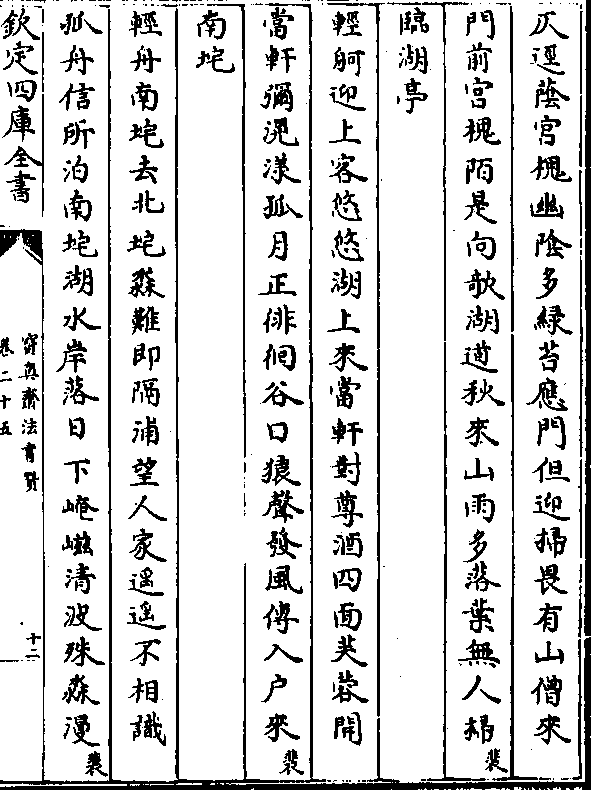 仄逕蔭宮槐幽陰多緑苔應門但迎掃畏有山僧來
門前宮槐陌是向歌湖道秋來山雨多落葉無人掃裴
臨湖亭
輕舸迎上客悠悠湖上來當軒對尊酒四面芙蓉開
當軒彌滉漾孤月正徘徊谷口猿聲發風傳入户來裴
南垞
輕舟南垞去北垞淼難即隔浦望人家遥遥不相識
孤舟信所泊南垞湖水岸落日下崦嵫清波殊淼漫裴
欽定四庫全書
寳真齋法書贊
卷二十五
十二